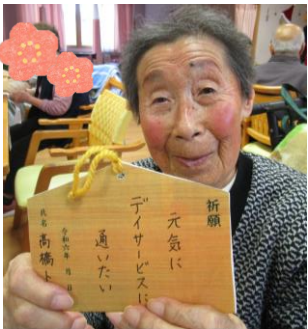 祈願
元気に
デイサービスに
通いたい
令和六年　月　日
氏名 高橋ト